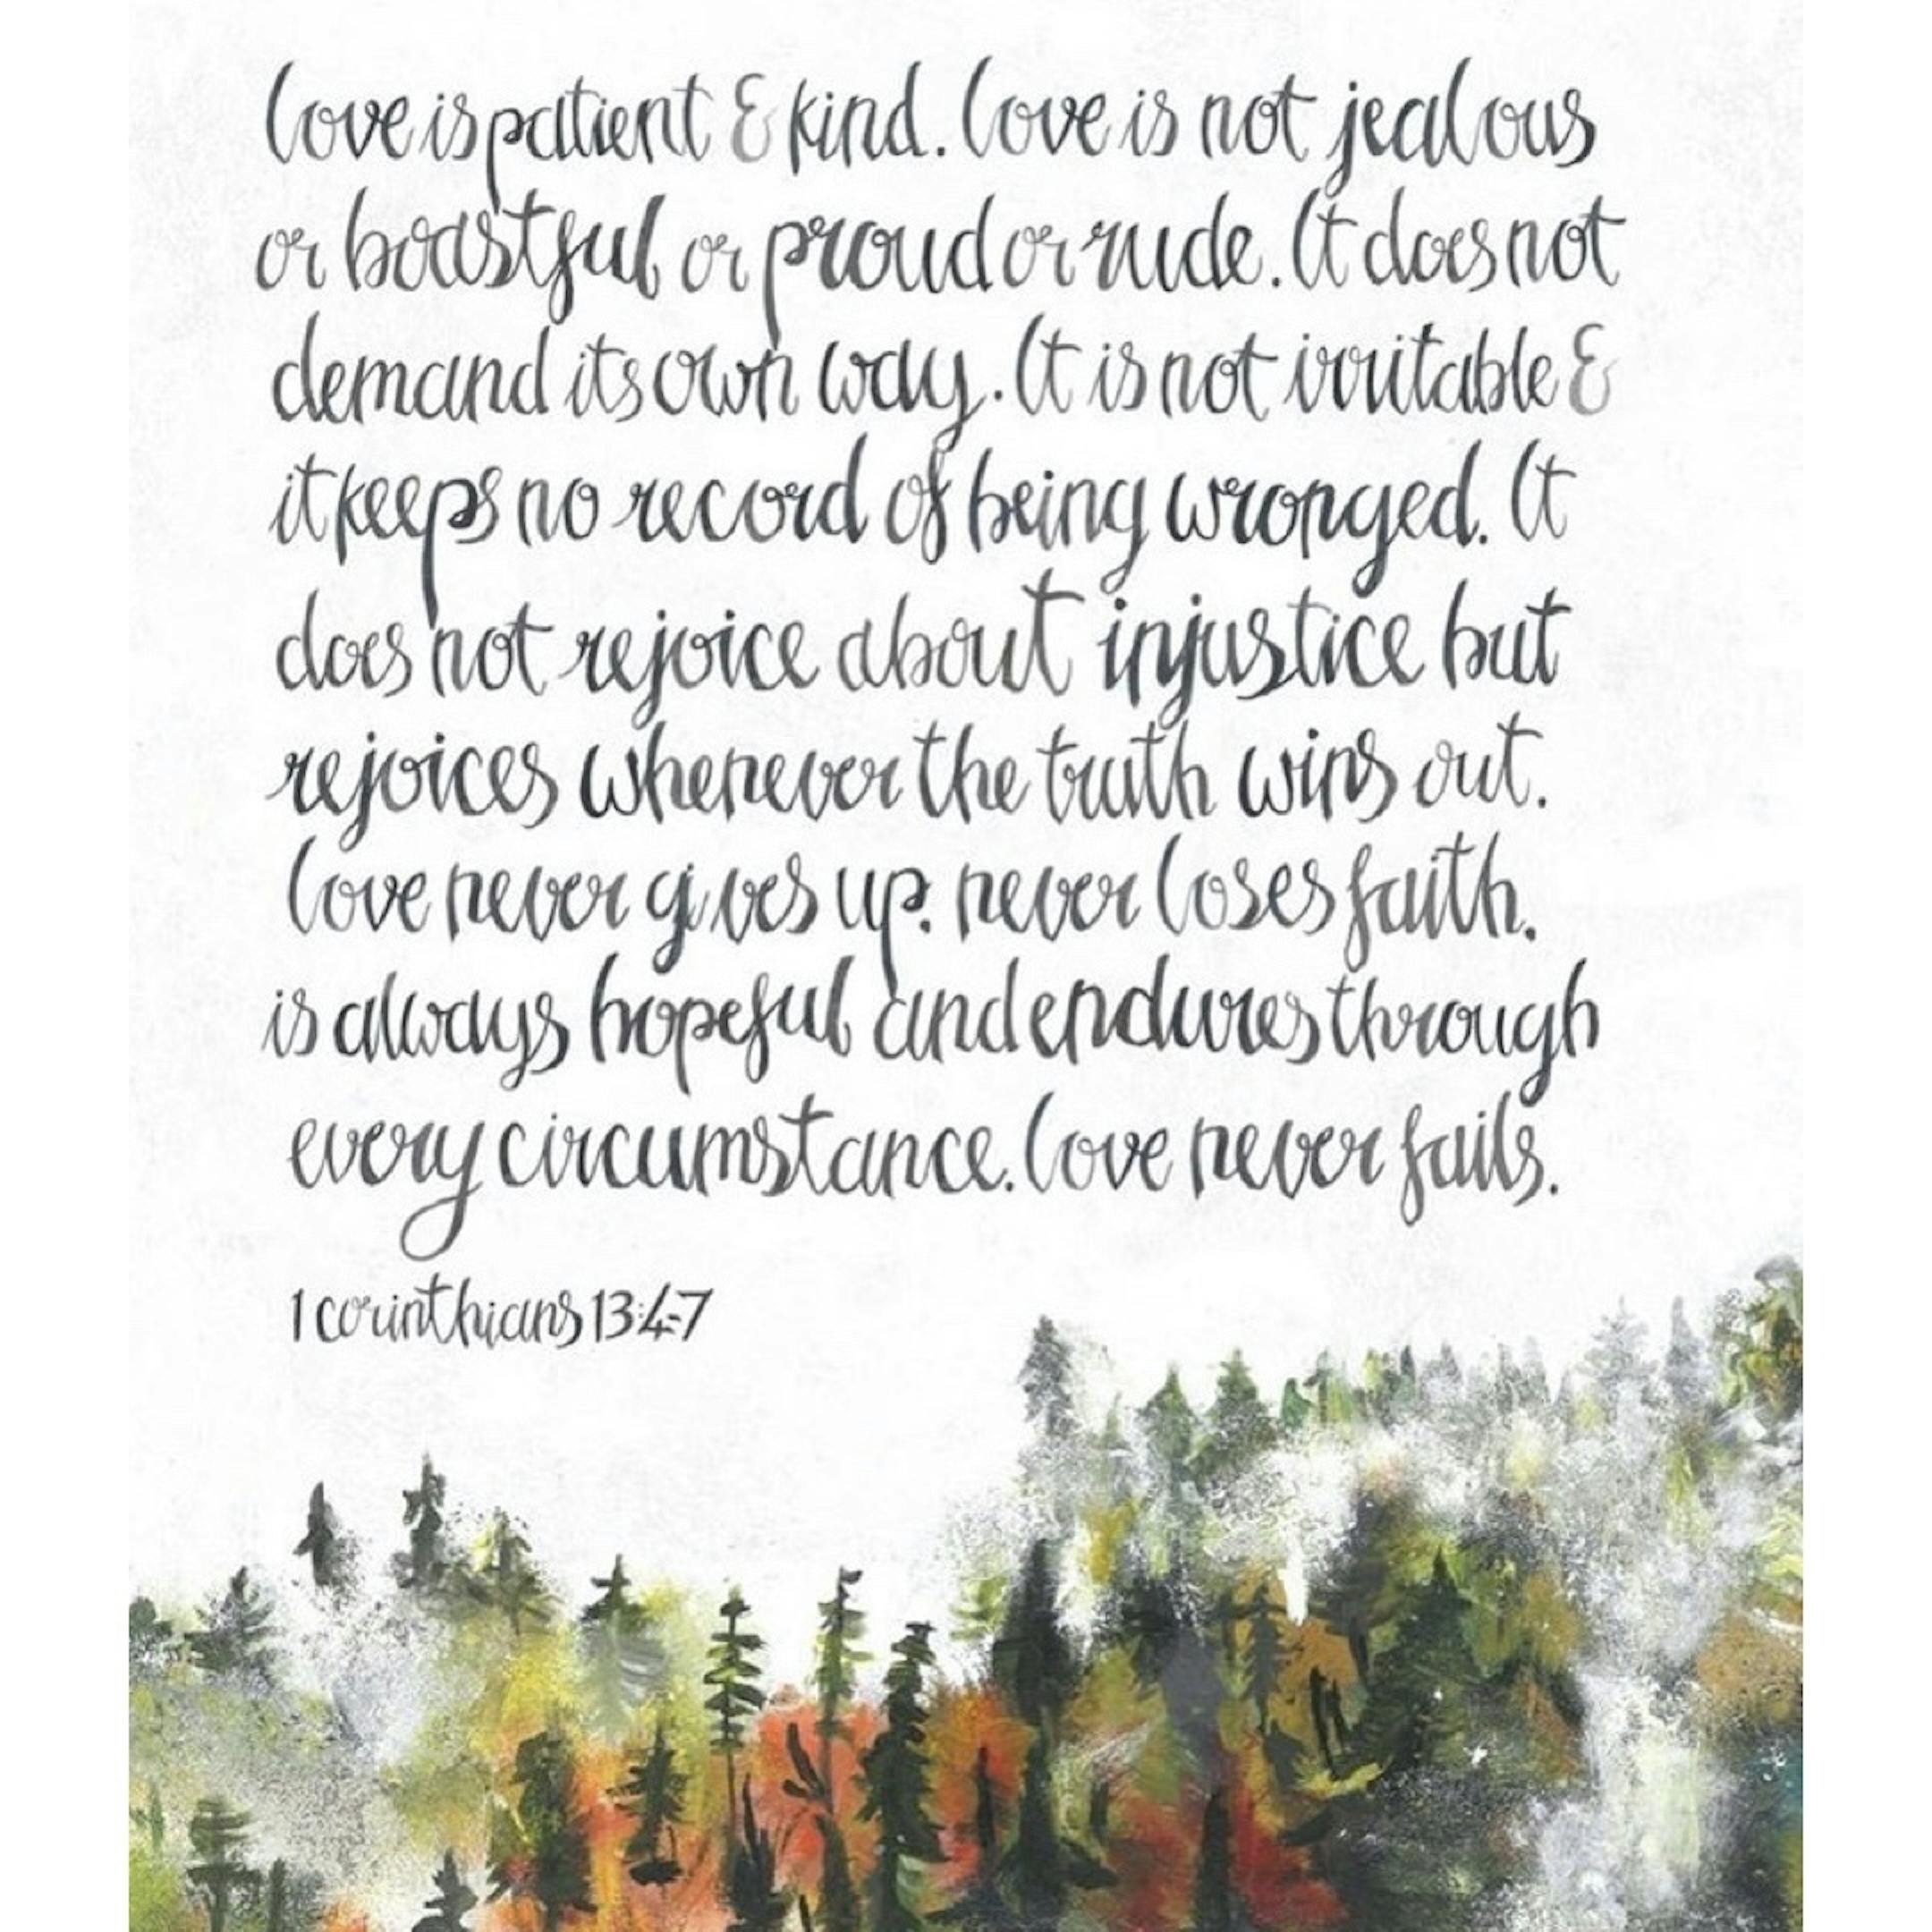 love is patient & kind. love is not jealous
or boastful or proud or rude. It does not
demand its own way. It is not irritable &
it keeps no record of being wronged. It
does not rejoice about injustice but
rejoices whenever the truth wins out.
love never gives up. never loses faith.
is always hopeful and endures through
every circumstance. love never fails.
1 corinthians 13:4-7